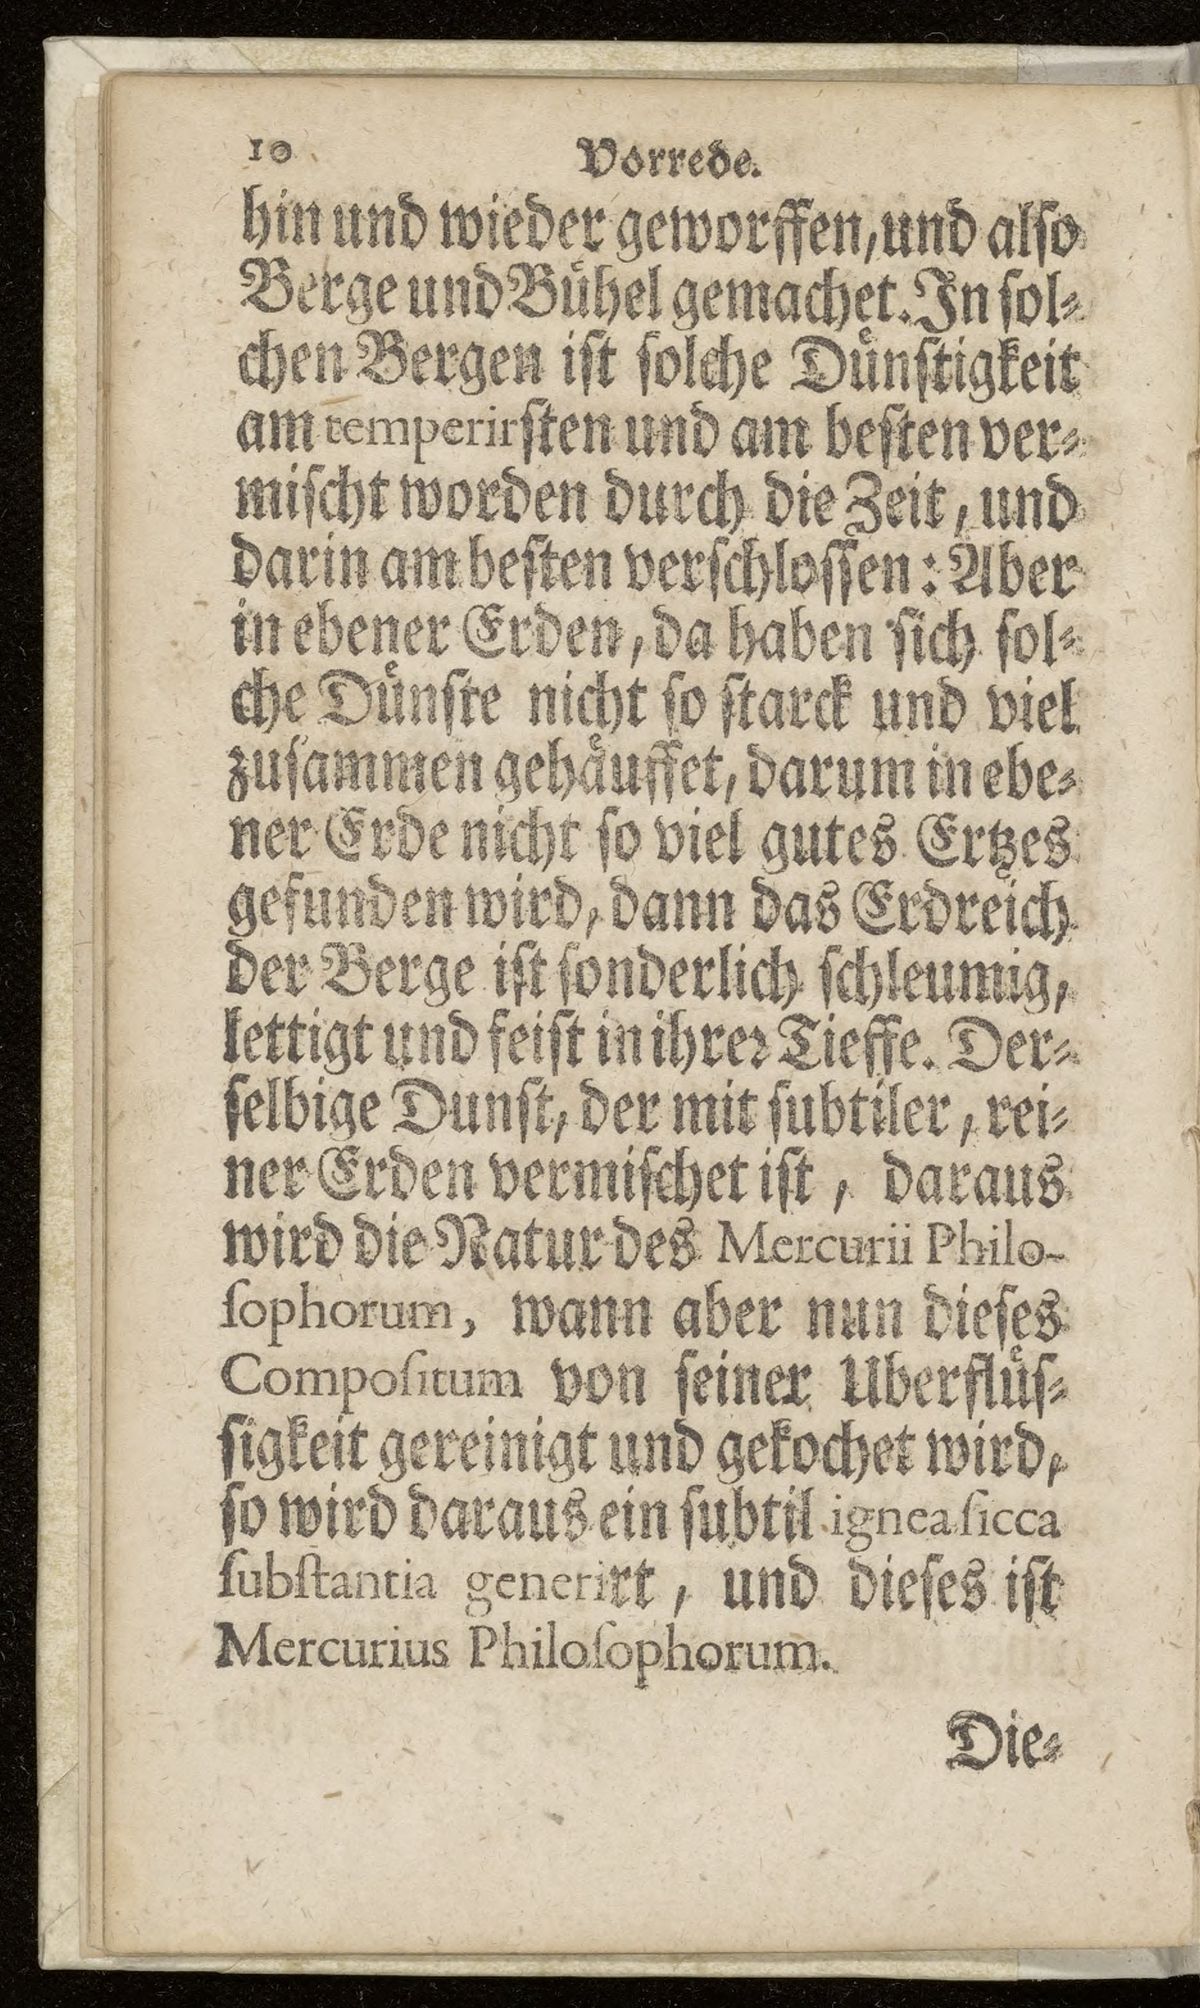 10 Vorrede.
hin und wieder geworffen, und also
Berge und Buͤhel gemachet. In sol-
chen Bergen ist solche Duͤnstigkeit
am temperirsten und am besten ver-
mischt worden durch die Zeit, und
darin am besten verschlossen: Aber
in ebener Erden, da haben sich sol-
che Duͤnste nicht so starck und viel
zusammen gehaͤuffet, darum in ebe-
ner Erde nicht so viel gutes Ertzes
gefunden wird, dann das Erdreich
der Berge ist sonderlich schleumig,
lettigt und feist in ihrer Tieffe. Der-
selbige Dunst, der mit subtiler, rei-
ner Erden vermischet ist, daraus
wird die Natur des Mercurii Philo-
sophorum, wann aber nun dieses
Compositum von seiner Uberfluͤs-
sigkeit gereinigt und gekochet wird,
so wird daraus ein subtil ignea sicca
substantia generirt, und dieses ist
Mercurius Philosophorum.
Die-